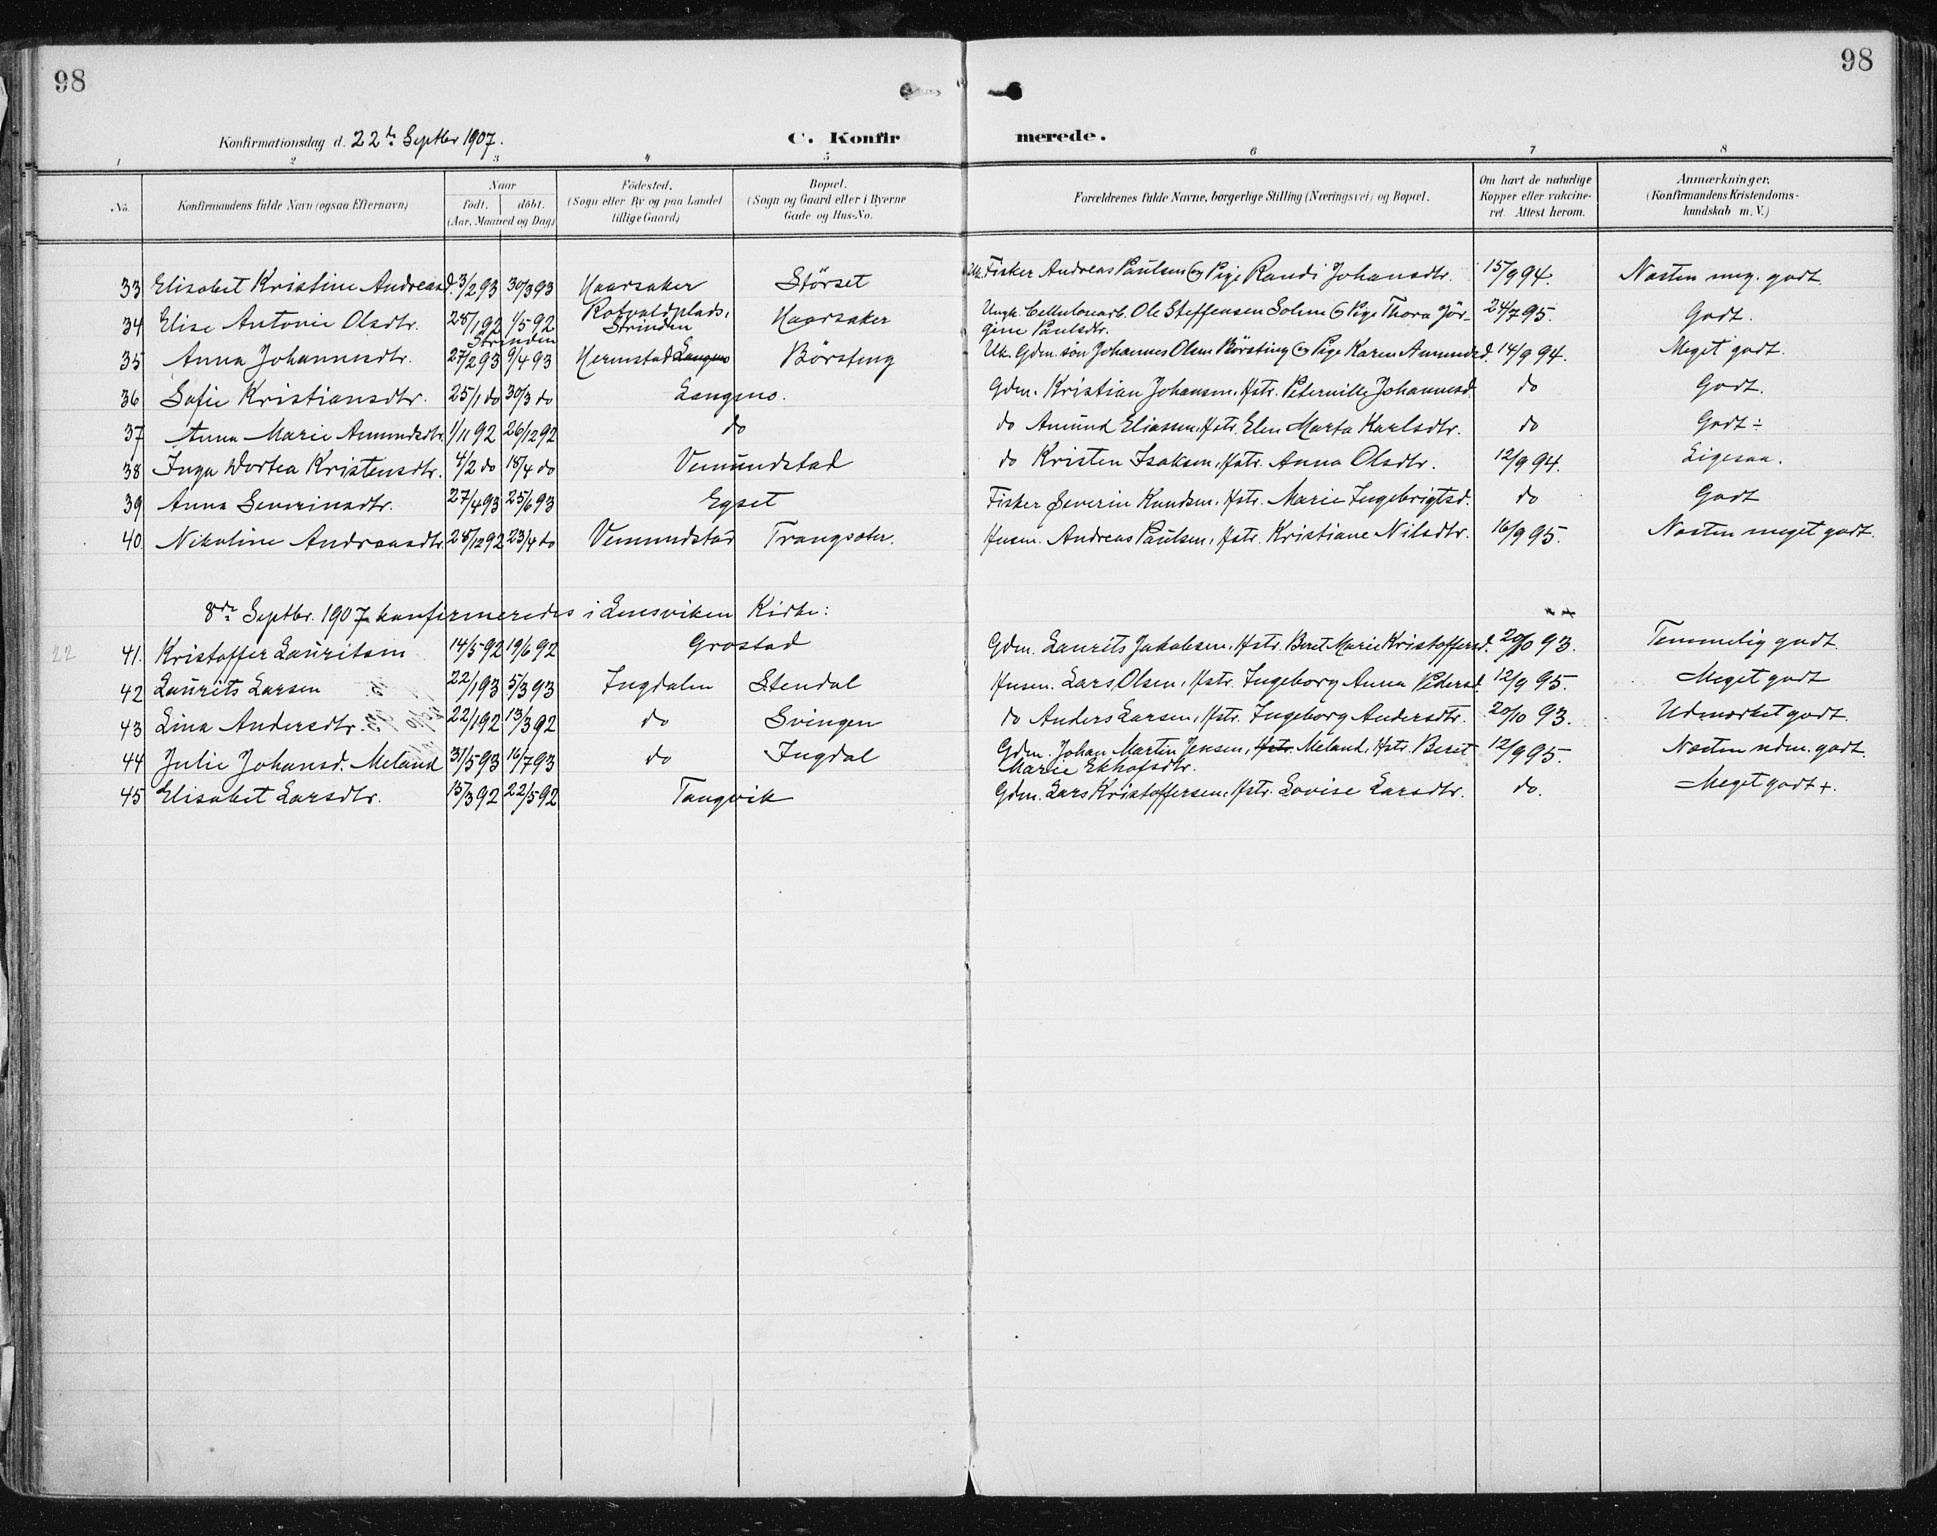 98
98
Konfirmationsdag d. 22de Septbr 1907.
C. Konfir merede.
1 2 3 4 5 6 7 8
No. Konfirmandens fulde Navn (ogsaa Efternavn) Naar födt. döbt. (Aar, Maaned og Dag) Födested. (Sogn eller By og paa Landet tillige Gaard) Bopæl. (Sogn og Gaard eller i Byerne Gade og Hus-No. Forældrenes fulde Navne, borgerlige Stilling (Næringsvei) og Bopæl. Om havt de naturlige Kopper eller vakcineret. Attest herom. Anmærkninger. (Konfirmandens Kristendomskundskab m. V.)
33 Elisabet Kristine Andreasd. 3/2 93 30/3 93 Haarsaker Störset Uk. Fisker Andreas Paulsen og Pige Randi Johansdtr. 15/9 94. Næsten meg. godt
34 Elise Antonie Olsdtr. 28/1 92 1/5 92 Rotvoldplads, Strinden Haarsaker Ungk. Cellulosearb. Ole Steffensen Solem og Pige Thora Jör-
gine Paulsdtr. 24/7 95. Godt.
Strinden
35 Anna Johannesdtr. 27/2 93 9/4 93 Hermstad Langmo Börsting Uk. Gdm. sön Johannes Olsen Börsting og Pige Karen Amundsd. 14/9 94. Meget godt.
36 Sofie Kristiansdtr. 25/1 do 30/3 do Langmo. Gdm. Kristian Johansen, Hstr. Peternille Johannesd. do Godt.
37 Anna Marie Amundsdtr. 1/11 92 26/12 92 do do Amund Eliassen, Hstr. Elen Marta Karlsdtr. do Godt ÷
38 Inga Dortea Kristensdtr. 4/2 do 18/4 do Vemundstad do Kristen Isaksen, Hstr. Anna Olsdtr. 12/9 94. Ligesaa.
39 Anna Severinsdtr. 27/4 93 25/6 93 Egset Fisker Severin Knudsen, Hstr. Marie Ingebrigtsd. do Godt
40. Nikoline Andreasdtr. 28/12 92 23/4 do Vemundstad Trangsæter. Husm. Andreas Paulsen, Hstr. Kristiane Nilsdtr. 16/9 95. Næsten meget godt.
8de Septbr. 1907 konfirmeredes i Lensviken Kirke:
22 41. Kristoffer Lauritsen 14/5 92 19/6 92 Grostad Gdm. Laurits Jakobsen, Hstr. Beret Marie Kristoffersd. 20/10 93. Temmelig godt
42 Laurits Larsen 22/1 93 5/3 93 Ingdalen Stendal Husm. Lars Olsen, Hstr. Ingeborg Anna Pedersd. 12/9 95. Meget godt
43 Lina Andersdtr. 22/1 92 13/3 92 do Svingen do Anders Larsen, Hstr. Ingeborg Andersdtr. 20/10 93. Udmærket godt.
44 Julie Johansd. Meland 31/5 93 16/7 93 do Ingdal Gdm. Johan Martin Jensen, Hstr. Meland, Hstr. Beret
Marie Ekhofsdtr. 12/9 95. Næsten udm. godt.
45 Elisabet Larsdtr. 15/3 92 22/5 92 Tangvik Gdm. Lars Kristoffersen, Hstr. Lovise Larsdtr. do. Meget godt +.